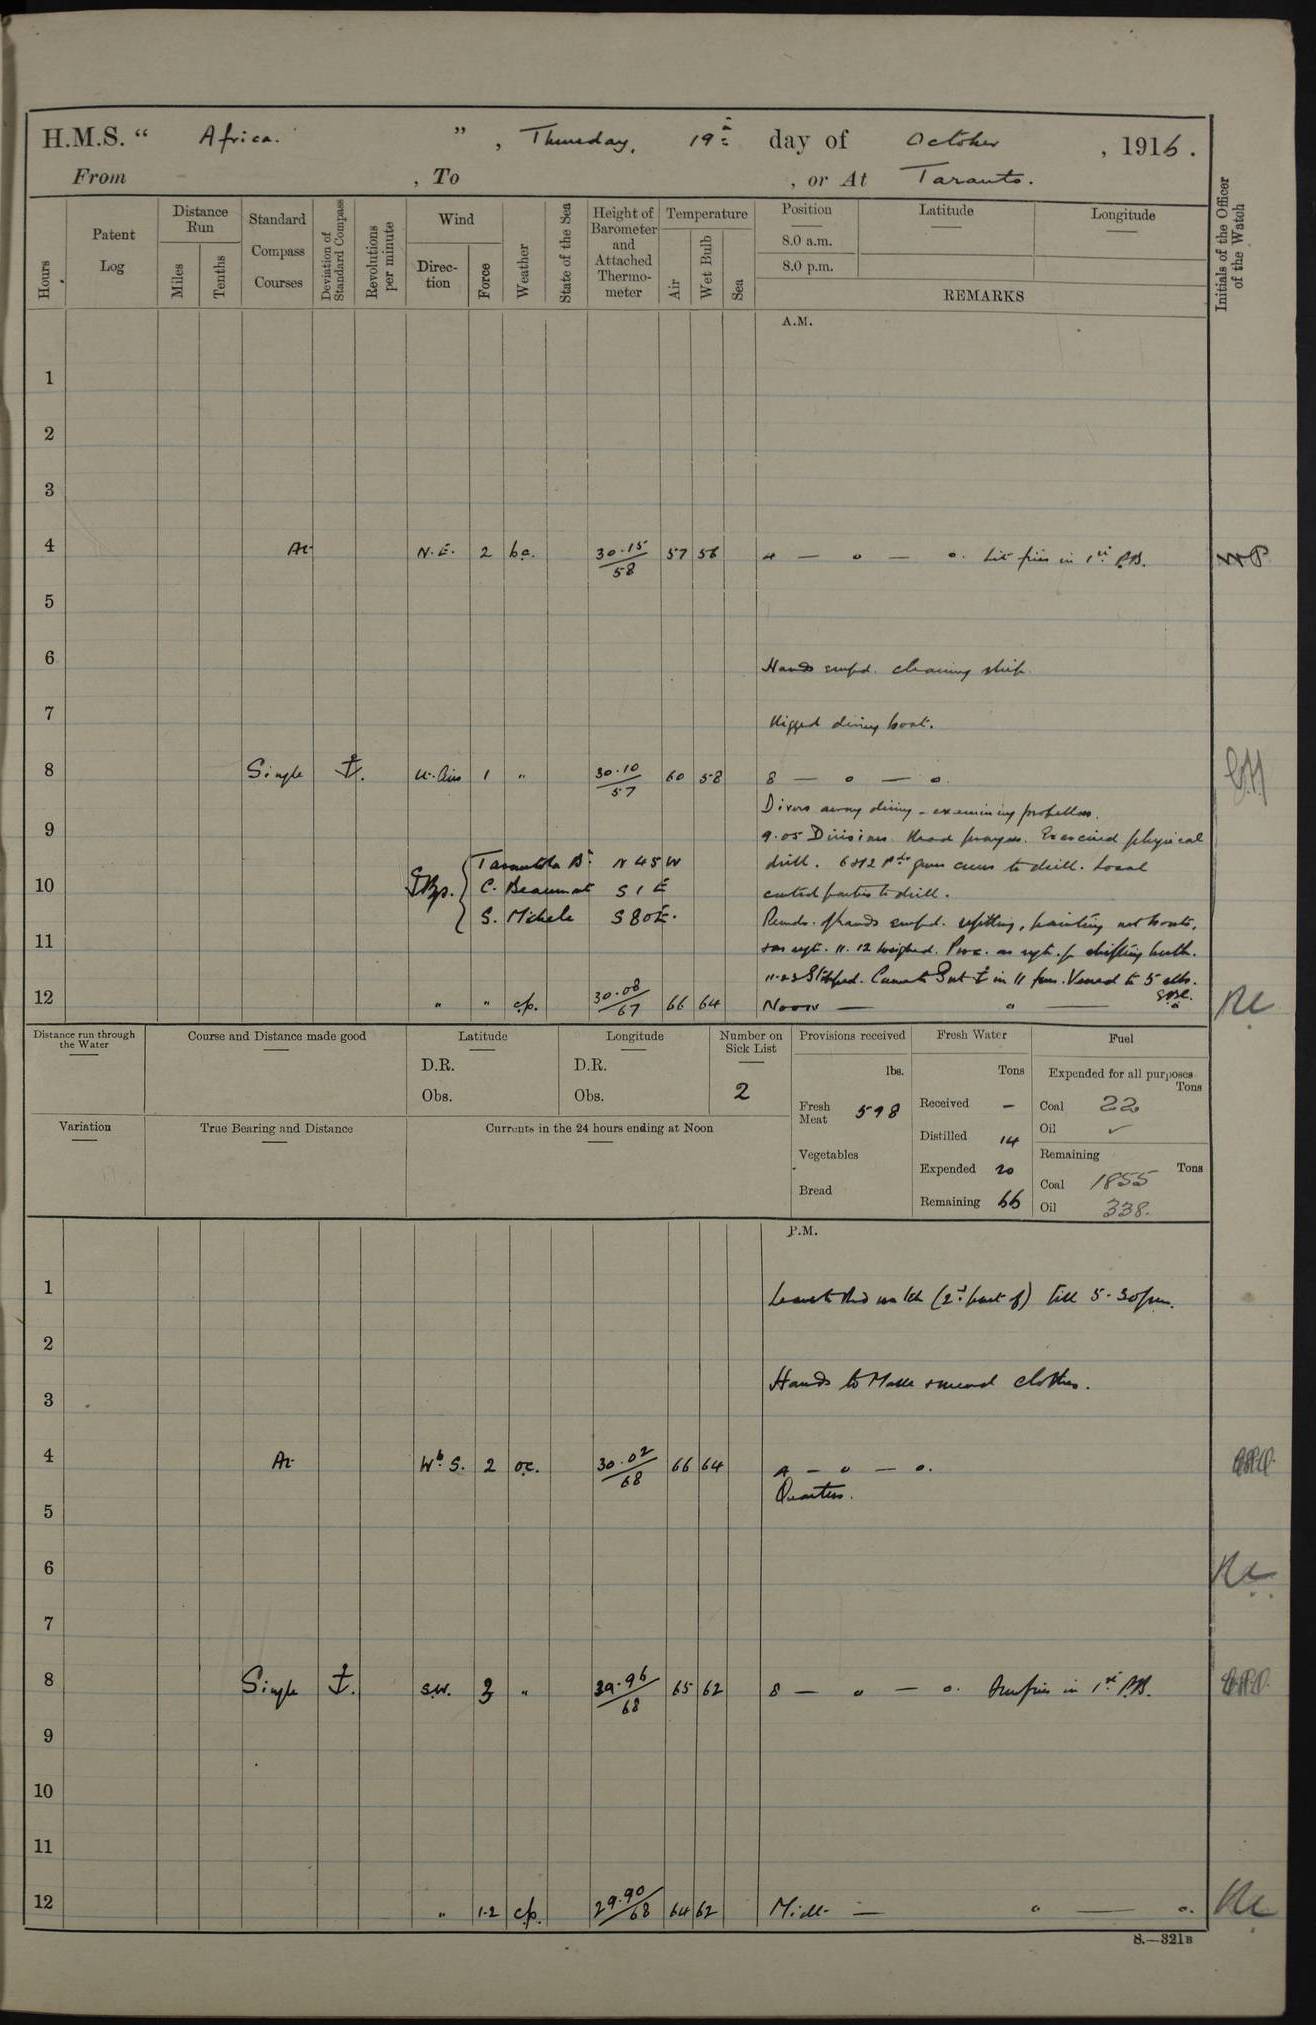 H.M.S. “ Africa. ”, Thursday, 19th day of October, 1916.
From , To , or At Taranto.
Hours
Patent Log
Distance Run
Miles
Tenths
Standard Compass Courses
Deviation of Standard Compass
Revolutions per minute
Wind
Direction
Force
Weather
State of the Sea
Height of Barometer and Attached Thermometer
Temperature
Air
Wet Bulb
Sea
Position
8.0 a.m.
8.0 p.m.
Latitude
Longitude
REMARKS
Initials of the Officer of the Watch
A.M.
1
2
3
4 At N.E. 2 bc. 30.15/58 57 56 4 — o — o. Lit fires in 1st P.B.
5
6
Hands empd. cleaning ship.
7
Rigged diving boat.
8 Single ⚓. Lt. Airs 1 „ 30.10/57 60 58 8 — o — o.
Divers away diving - examining propellers.
9
9.05 Divisions. Read prayers. Exercised physical
Tarantola Bn N 45 W drill. 6 & 12 Pdr guns crews to drill. Local
10 C. Beaumont S 1 E control parties to drill.
S. Michele S 80 E. Remdr. of hands empd. refitting, painting
11 as reqte. 11.12 Weighed. Proc. as reqte. for shifting berth.
11.23 Stopped. Came to Port ⚓ in 11 fms. Veered to 5 shls.
12 „ „ c.p. 30.08/67 66 64 Noon — o —
Distance run through the Water
Course and Distance made good
Latitude
D.R.
Obs.
Longitude
D.R.
Obs.
Number on Sick List
2
Provisions received
lbs.
Fresh Meat 598
Vegetables
Bread
Fresh Water
Tons
Received –
Distilled 14
Expended 20
Remaining 66
Fuel
Expended for all purposes
Tons
Coal 22
Oil ✓
Remaining
Tons
Coal 1855
Oil 338.
Variation
True Bearing and Distance
Currents in the 24 hours ending at Noon
P.M.
1
Leave to Red watch (2nd part of) till 5.30 pm.
2
Hands to Make & mend clothes.
3
4 At Wb S. 2 oc. 30.02/68 66 64 4 — o — o.
Quarters.
5
6
7
8 Single ⚓. S.W. „ 29.96/68 65 62 8 — o — o. fires in 1st P.B.
9
10
11
12 „ 1-2 c.p. 29.90/68 64 62 Midt — o — o.
S.—321B